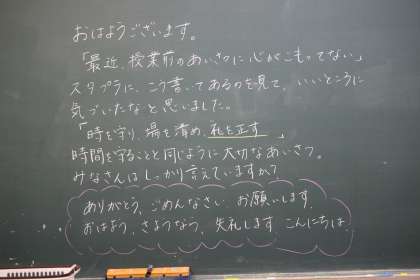 おはようございます。
「最近、授業前のあいさつに心がこもってない」
スタプラに、こう書いてあるのを見て、いいところに
気づいたなと思いました。
「時を守り、場を清め、礼を正す」
時間を守ることと同じように大切なあいさつ。
みなさんはしっかり言えていますか?
ありがとう、ごめんなさい、お願いします、
おはよう、さようなら、失礼します、こんにちは